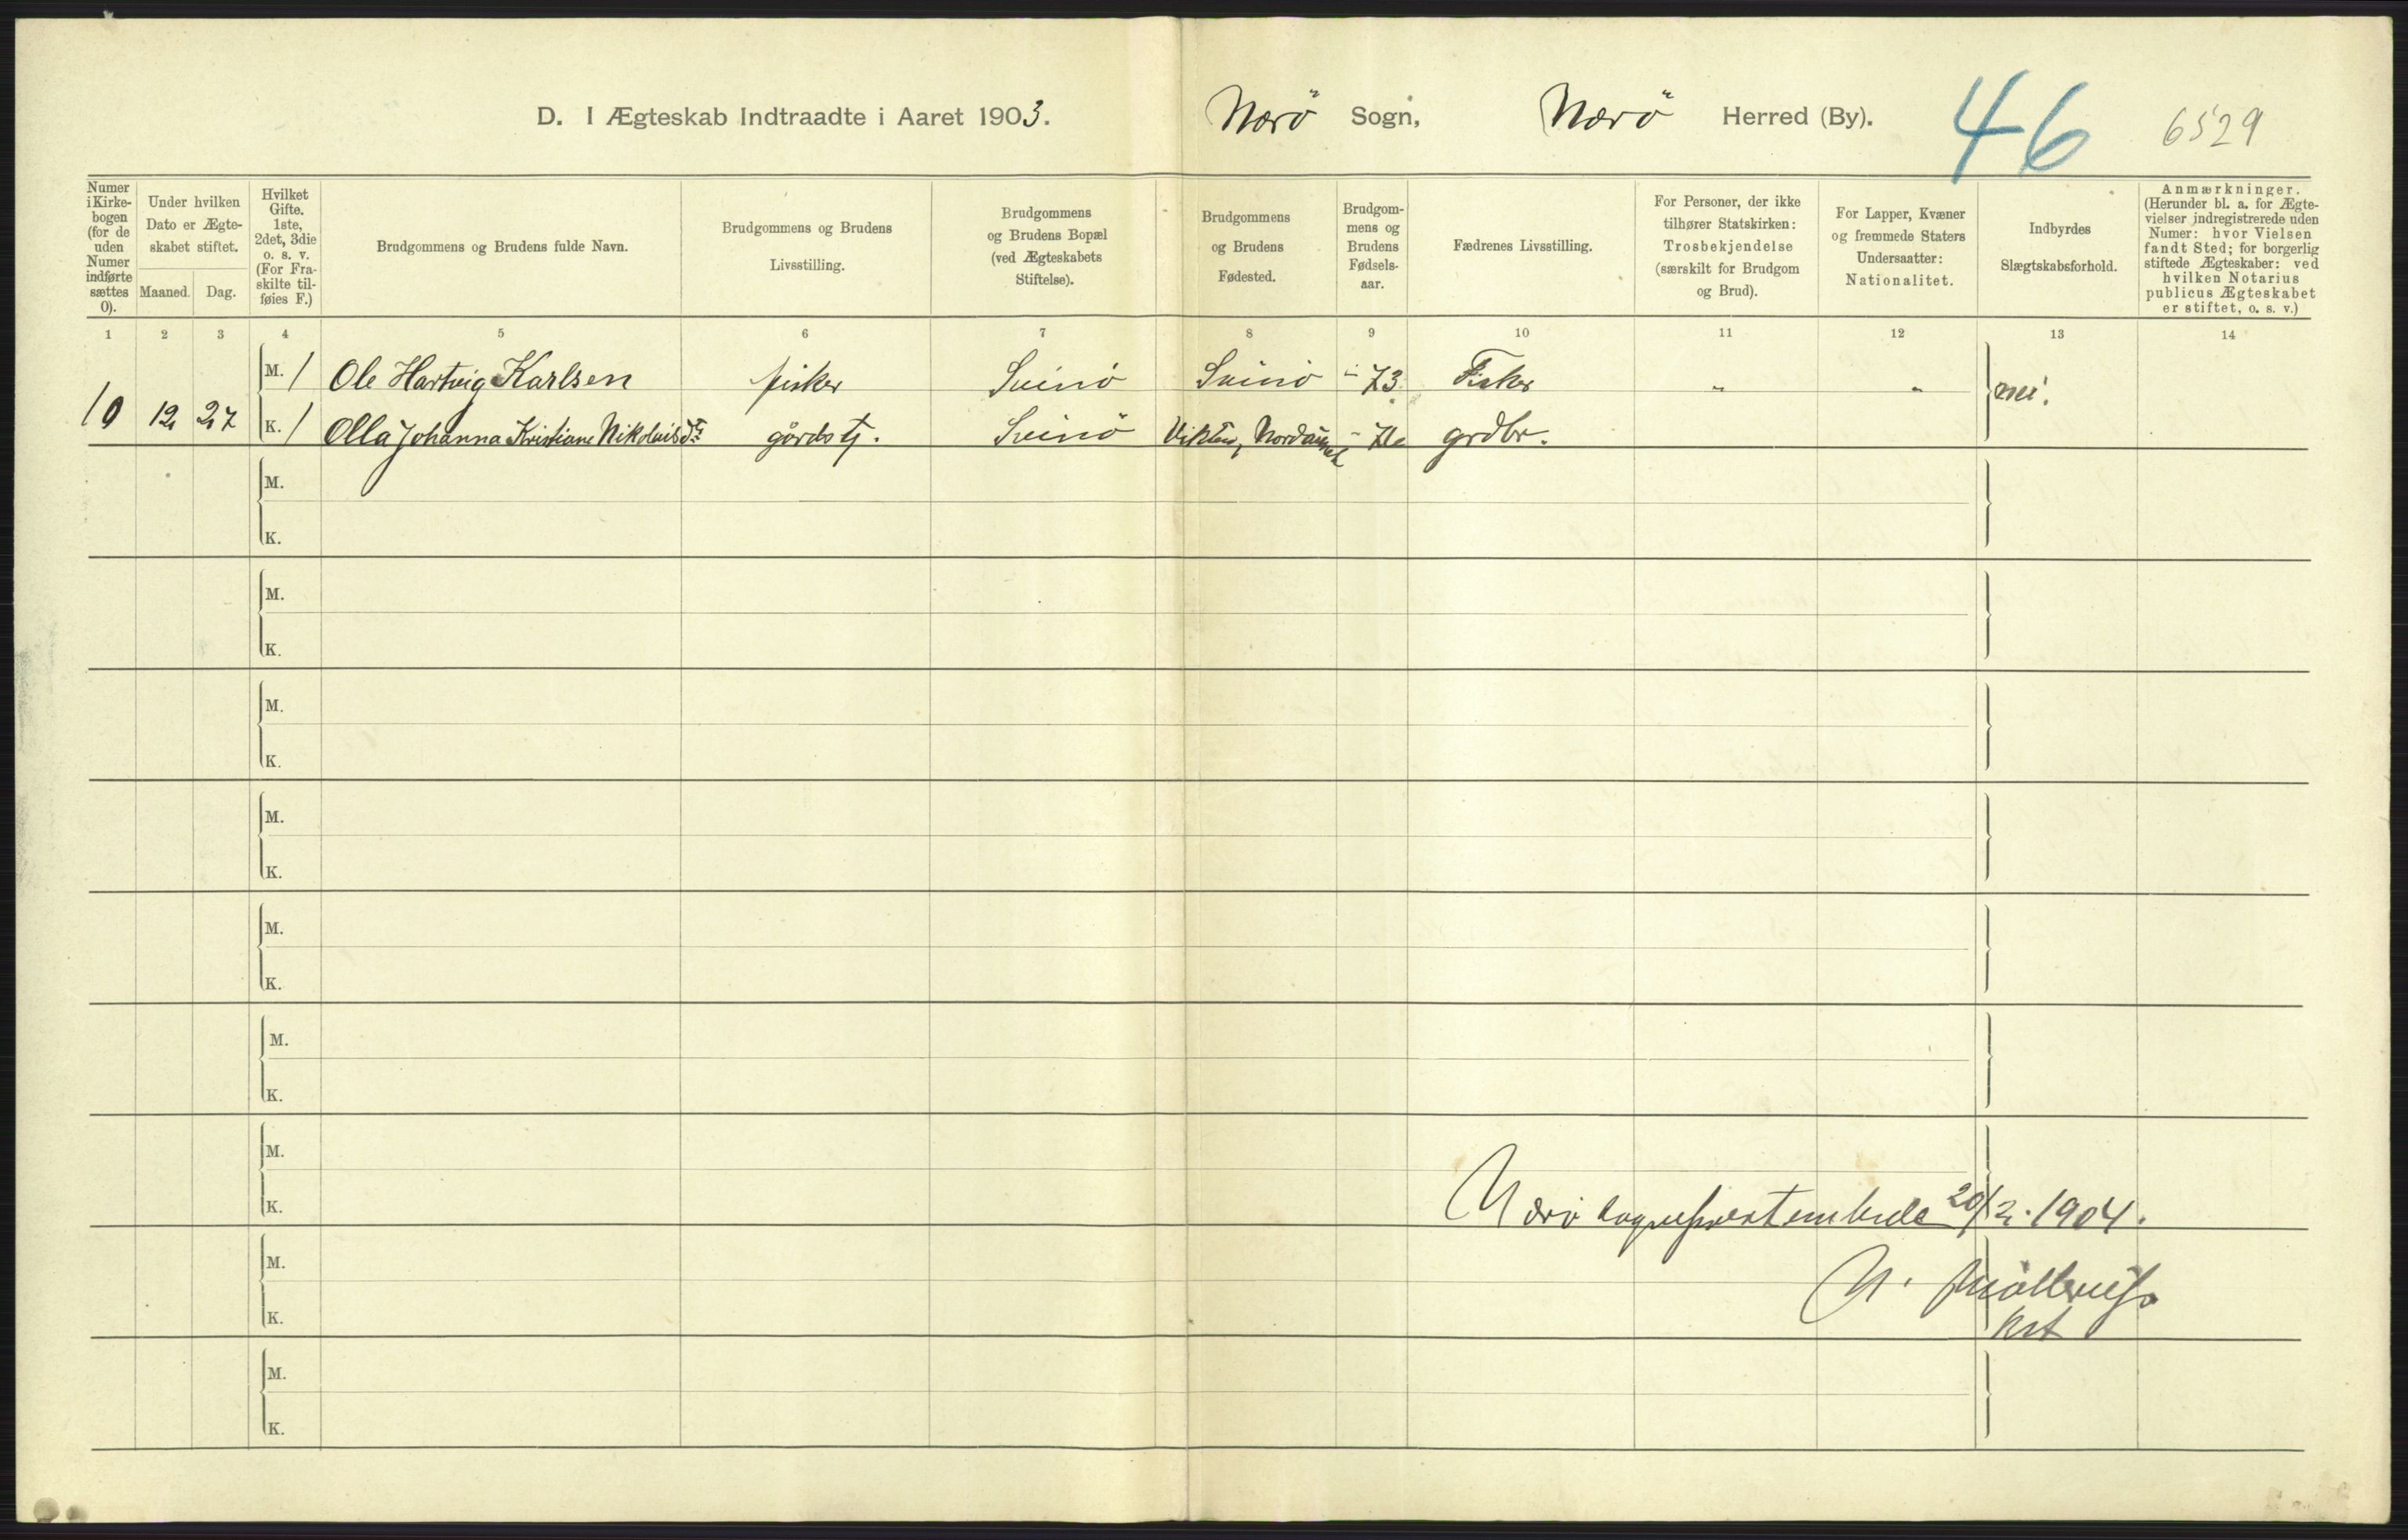 D. I Ægteskab Indtraadte i Aaret 1903. Nærö Sogn, Nærö Herred (By). 46 6529
Numer i Kirkebogen (for de uden Numer indførte sættes 0).
Under hvilken Dato er Ægteskabet stiftet.
Maaned. Dag.
Hvilket Gifte. 1ste, 2det, 3die o. s. v. (For Fraskilte tilføies F.)
Brudgommens og Brudens fulde Navn.
Brudgommens og Brudens Livsstilling.
Brudgommens og Brudens Bopæl (ved Ægteskabets Stiftelse).
Brudgommens og Brudens Fødested.
Brudgommens og Brudens Fødselsaar.
Fædrenes Livsstilling.
For Personer, der ikke tilhører Statskirken: Trosbekjendelse (særskilt for Brudgom og Brud).
For Lapper, Kvæner og fremmede Staters Undersaatter: Nationalitet.
Indbyrdes Slægtskabsforhold.
Anmærkninger. (Herunder bl. a. for Ægtevielser indregistrerede uden Numer: hvor Vielsen fandt Sted; for borgerlig stiftede Ægteskaber: ved hvilken Notarius publicus Ægteskabet er stiftet, o. s. v.)
1 2 3 4 5 6 7 8 9 10 11 12 13 14
M. 1 Ole Hartvig Karlsen fisker Svinö Svinö 73. Fisker " " nei.
10 12 27 K. 1 Olla Johanna Kristiane Nikolaisdt: gårdstj. Svinö Vikten, grdbr.
M.
K.
M.
K.
M.
K.
M.
K.
M.
K.
M.
K.
M.
K.
Nærö sogneprestembede 20/2. 1904.
M.
K.
kst
M.
K.